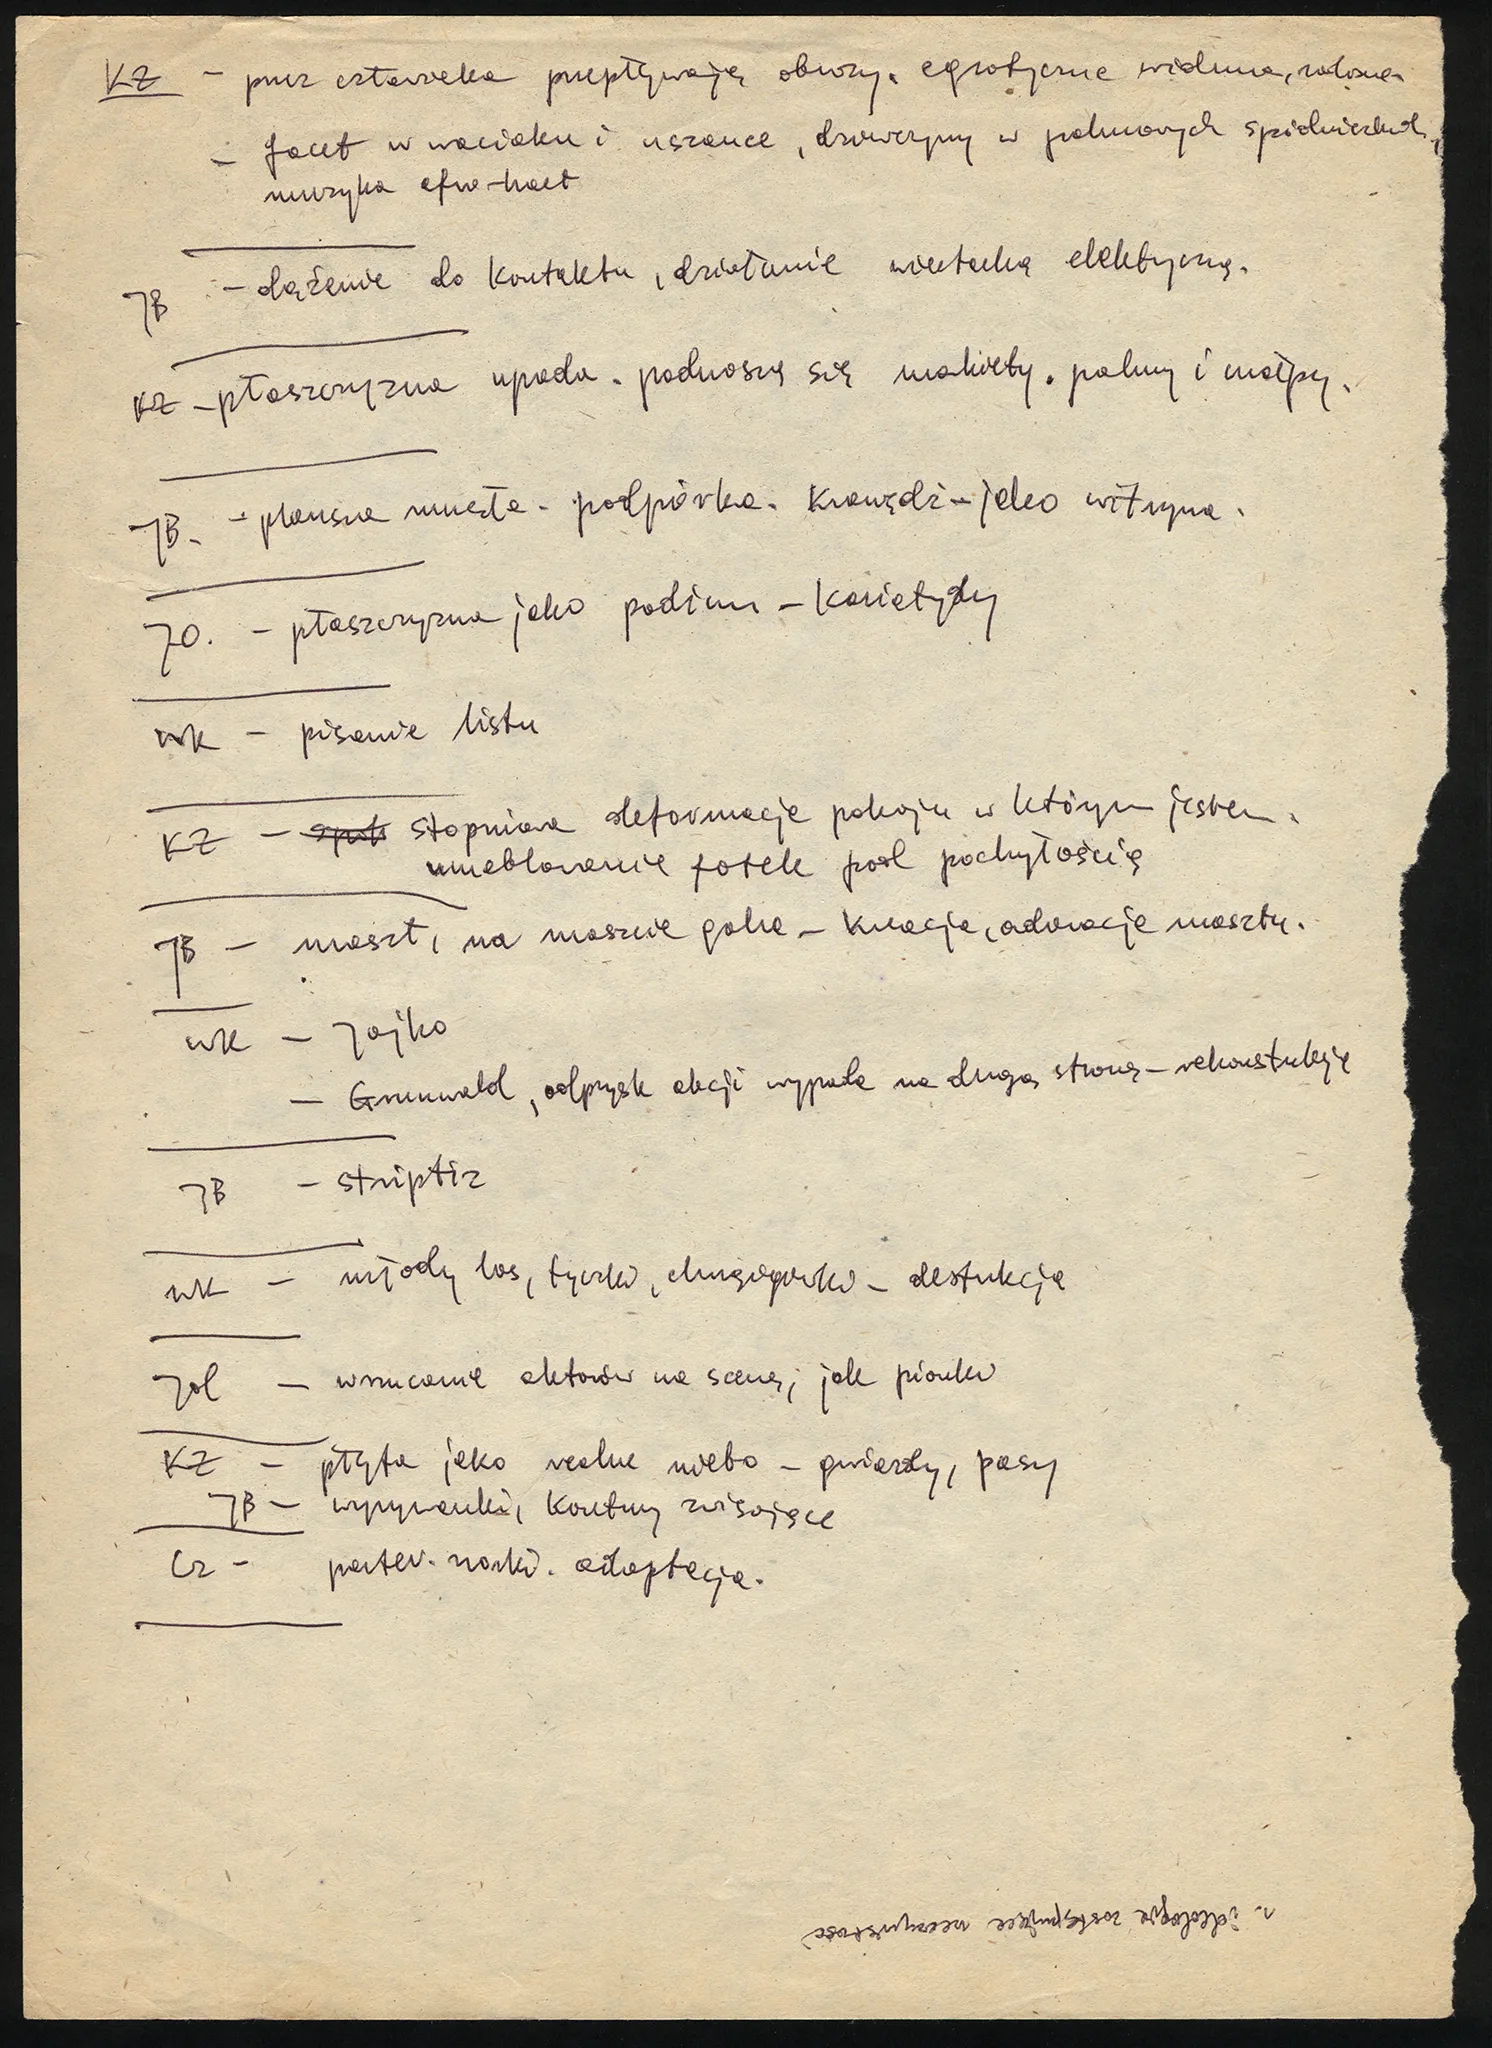 KZ – przez człowieka przepływają obrazy. egzotyczne widma, zalane.
– facet w waciaku i uszance, dziewczyny w palmowych spódniczkach,
muzyka afro-
JB – dążenie do kontaktu, działanie wiertarką elektryczną.
KZ – płaszczyzna upada. podnoszą się makiety. palmy i małpy.
JB. – planowa muszla. podpórka. Krawędź – jako witryna.
JO. – płaszczyzna jako podium – Kariatydy
WK – pisanie listu
KZ – stopniowa deformacja pokoju w którym jestem.
umeblowanie fotele pod pochyłością
JB – maszt, na maszcie gołe – kreacja, adoracja masztu.
WK – Jajko
– Grunwald, odprysk akcji wypada na drugą stronę – rekonstrukcja
JB – striptiz
WK – młody las, tyczki, – destrukcja
Jol – wrzucanie aktorów na scenę, jak pionki
KZ – płyta jako realne niebo – gwiazdy, pasy
JB – wyrywanki, kontury zwisające
Cz – parter. worki. adaptacja.
1. ideologie zastępujące rzeczywistość